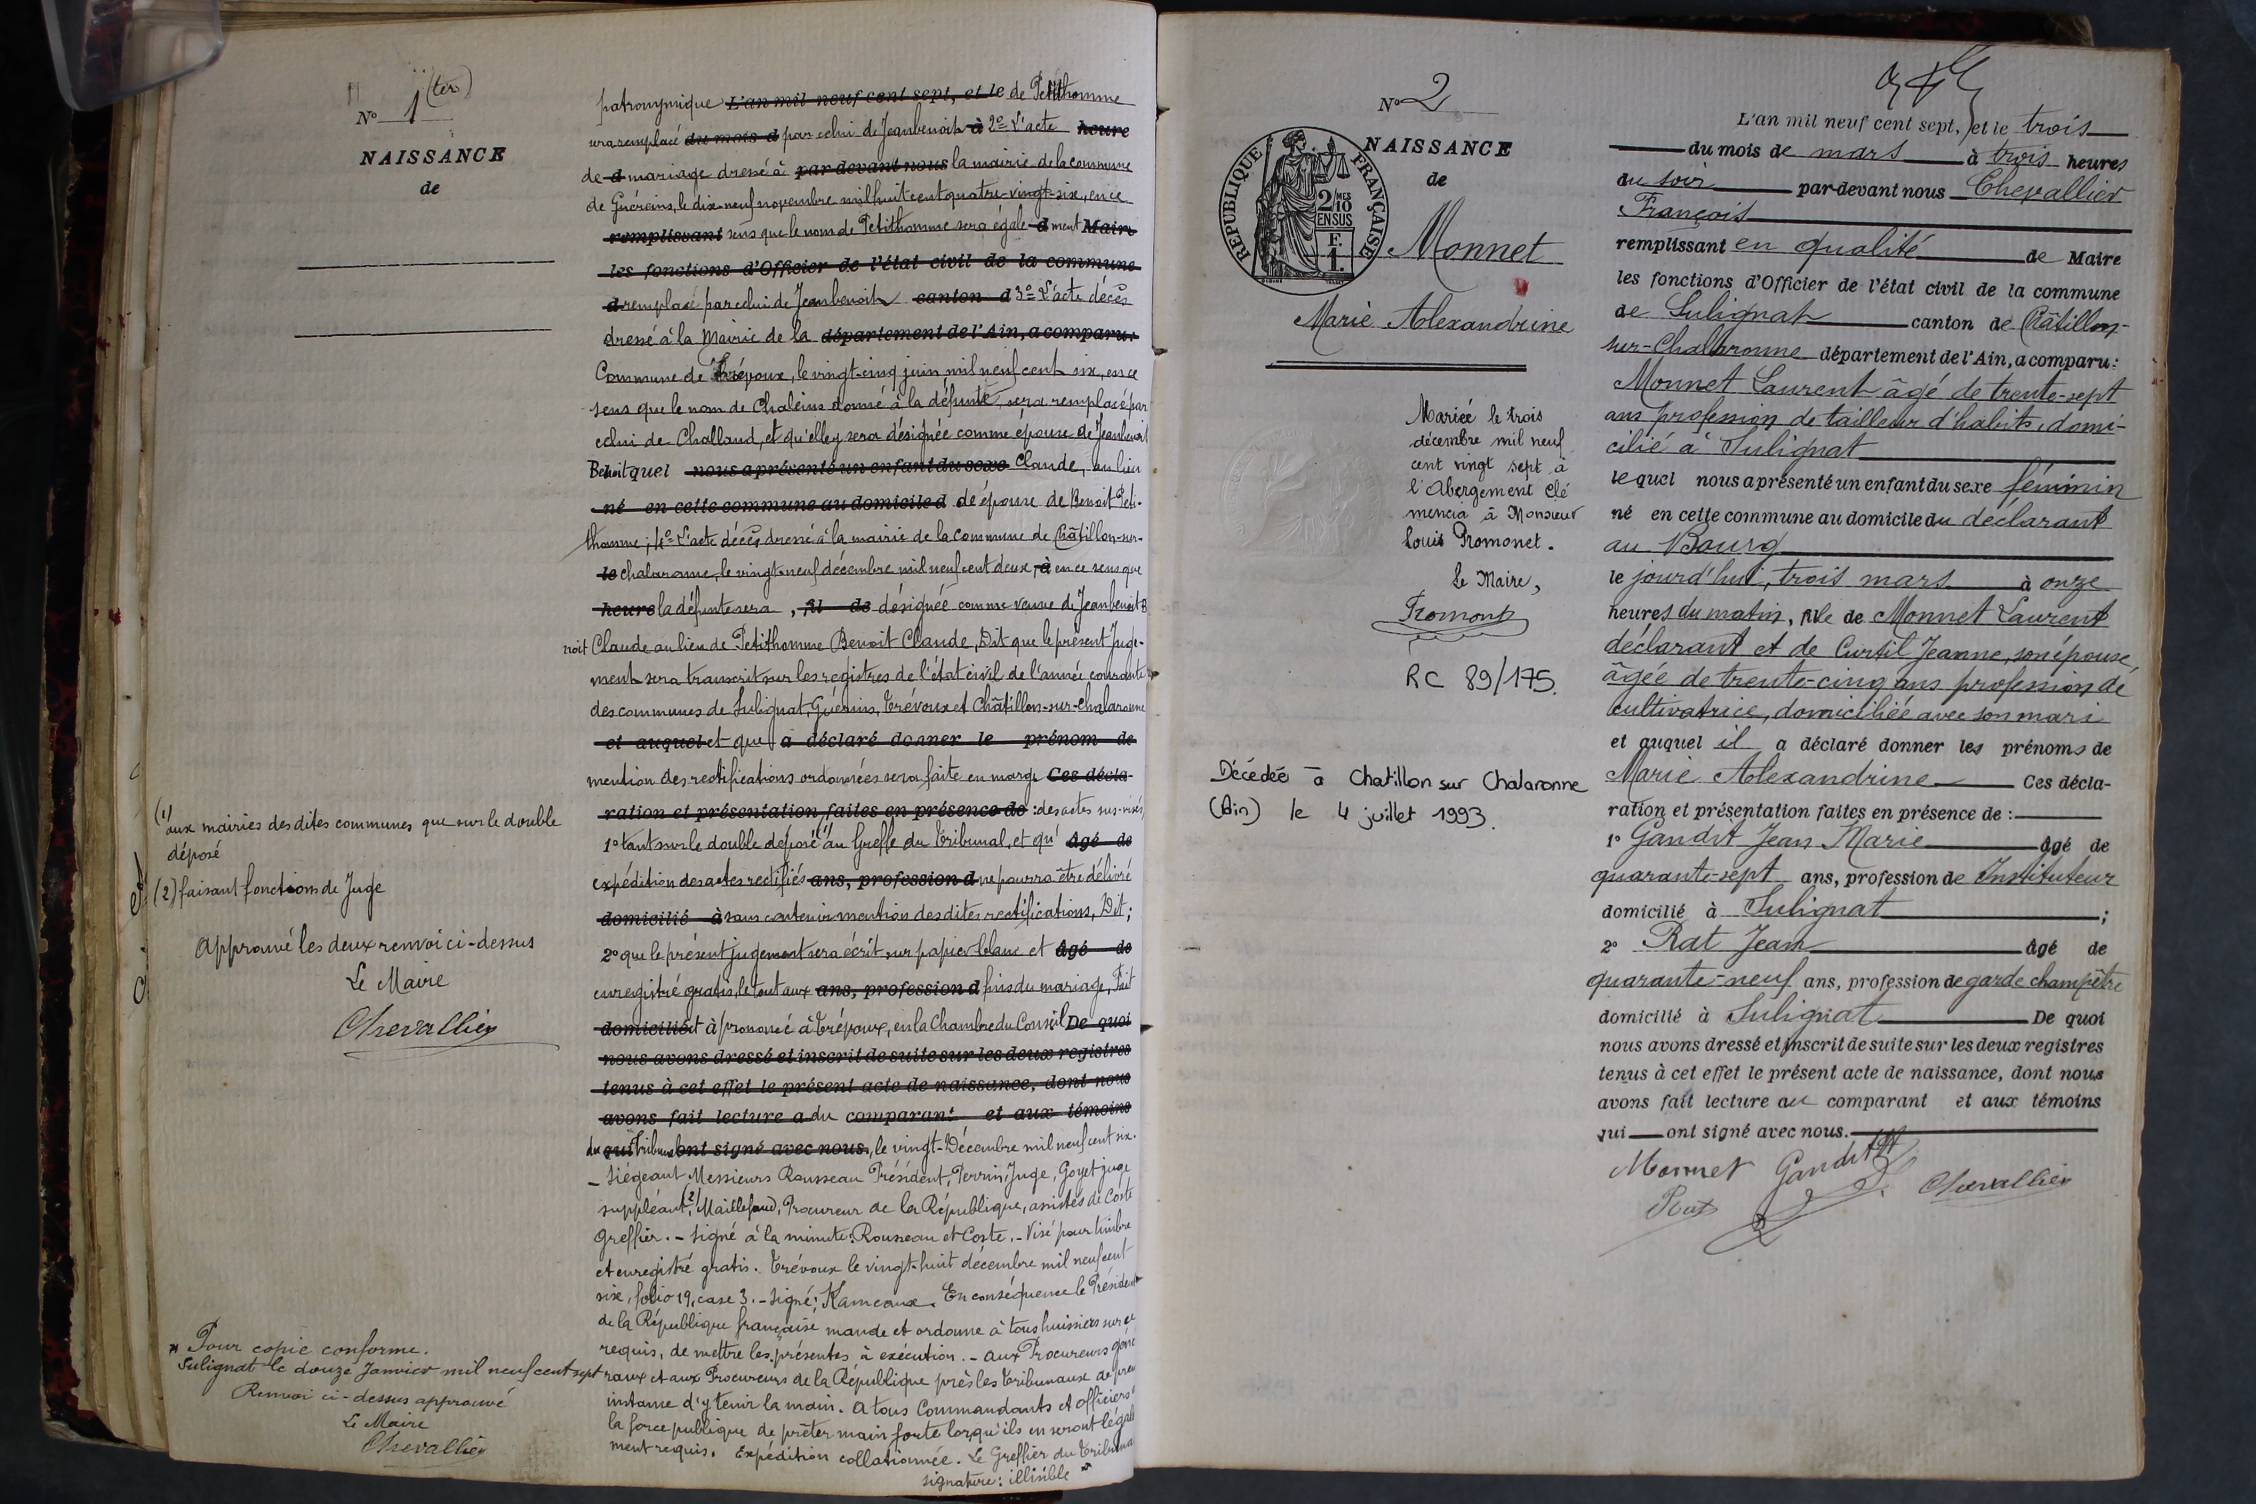 N° 1 (ter)
NAISSANCE
de
(1) aux mairies des dites communes que sur le double
déposé
(2) faisant fonctions de Juge
Approuvé les deux renvoi ci-dessus
Le Maire
Chevallier
Pour copie conforme.
Sulignat le douze Janvier mil neuf cent sept
Renvoi ci-dessus approuvé
Le Maire
Chevallier
patronymique L'an mil neuf cent sept, et le de Petithomme
sera remplacé du mois d par celui de Jeanbenoit à 2° L'acte heure
de d mariage dressé à par devant nous la mairie de la commune
de Guéreins, le dix-neuf novembre mil huit cent quatre-vingt-six, en ce
remplissant sens que le nom de Petithomme sera égale d ment Maire
les fonctions d'Officier de l'état civil de la commune
d remplacé par celui de Jeanbenoit canton d 3° L'acte décès
dressé à la Mairie de la département de l'Ain, a comparu:
Commune de Trévoux, le vingt-cinq juin mil neuf cent six, en ce
sens que le nom de Chaleins donné à la défunte, sera remplacé par
celui de Challand, et qu'elle y sera désignée comme épouse de Jeanbenoit
Benoit quel nous a présenté un enfant du sexe Claude, au lieu
né en cette commune au domicile d de épouse de Benoit Peti-
thomme; 4° L'acte décès dressé à la mairie de la commune de Châtillon-sur-
le chalaronne, le vingt-neuf décembre mil neuf cent deux, à en ce sens que
heure la défunte sera , fil de désignée comme veuve de Jeanbenoit B
noit Claude au lieu de Petithomme Benoit Claude, Dit que le présent Juge-
ment sera transcrit sur les registres de l'état civil de l'année courante
des communes de Sulignat, Guéreins, Trévoux et Châtillon-sur-Chalaronne
et auquel et que a déclaré donner le prénom de
mention des rectifications ordonnées sera faite en marge Ces décla-
ration et présentation faites en présence de : des actes sus-visés
1° tant sur le double déposé (1) au Greffe du Tribunal, et qu' âgé de
expédition des actes rectifiés ans, profession d ne pourra être délivré
domicilié à sans contenir mention des dites rectifications, Dit;
2° que le présent jugement sera écrit sur papier blanc et âgé de
enregistré gratis, le tout aux ans, profession d fins du mariage, Fait
domicilié et à prononcé à Trévoux, en la Chambre du Conseil De quoi
nous avons dressé et inscrit de suite sur les deux registres
tenus à cet effet le présent acte de naissance, dont nous
avons fait lecture a du comparant et aux témoins
du qui Tribunal ont signé avec nous, le vingt-Décembre mil neuf cent six.
- Siégeant Messieurs Rousseau Président, Perrin, Juge, Goyet juge
suppléant (2), Maillefaud, Procureur de la République, assistés de Coste
Greffier. - Signé à la minute: Rousseau et Coste. - Visé pour timbre
et enregistré gratis. Trévoux le vingt-huit décembre mil neuf cent
six, folio 19, case 3. - Signé: Kameaux. En conséquence le Président
de la République française mande et ordonne à tous huissiers sur ce
requis, de mettre les présentes à exécution. - Aux Procureurs géné
raux et aux Procureurs de la République près les Tribunaux de prem
instance d'y tenir la main. A tous Commandants et officiers
la force publique de prêter main forte lorsqu'ils en seront légale
ment requis. Expédition collationnée. Le Greffier du Tribunal
signature: illisible
N° 2
NAISSANCE
de
RÉPUBLIQUE FRANÇAISE
2/10 MES
EN SUS
F.
1.
Monnet
Marie Alexandrine
Mariée le trois
décembre mil neuf
cent vingt sept à
l'Abergement Clé
mencia à Monsieur
Louis Promonet.
Le Maire,
Promont
RC 89/175.
Décédée à Chatillon sur Chalaronne
(Ain) le 4 juillet 1993.
L'an mil neuf cent sept, et le trois
du mois de mars à trois heures
du soir par-devant nous Chevallier
François
remplissant en qualité de Maire
les fonctions d'Officier de l'état civil de la commune
de Sulignat canton de Châtillon-
sur-Chalaronne département de l'Ain, a comparu:
Monnet Laurent âgé de trente-sept
ans profession de tailleur d'habits, domi-
cilié à Sulignat
lequel nous a présenté un enfant du sexe féminin
né en cette commune au domicile du déclarant
au Bourg
le jourd'hui, trois mars à onze
heures du matin, fille de Monnet Laurent
déclarant et de Curtil Jeanne, son épouse,
âgée de trente-cinq ans profession de
cultivatrice, domiciliée avec son mari
et auquel il a déclaré donner les prénoms de
Marie Alexandrine Ces décla-
ration et présentation faites en présence de :
1° Gandit Jean Marie âgé de
quarante-sept ans, profession de Instituteur
domicilié à Sulignat ;
2° Rat Jean âgé de
quarante-neuf ans, profession de garde champêtre
domicilié à Sulignat De quoi
nous avons dressé et inscrit de suite sur les deux registres
tenus à cet effet le présent acte de naissance, dont nous
avons fait lecture au comparant et aux témoins
qui ont signé avec nous.
Monnet Gandit
Rat Chevallier